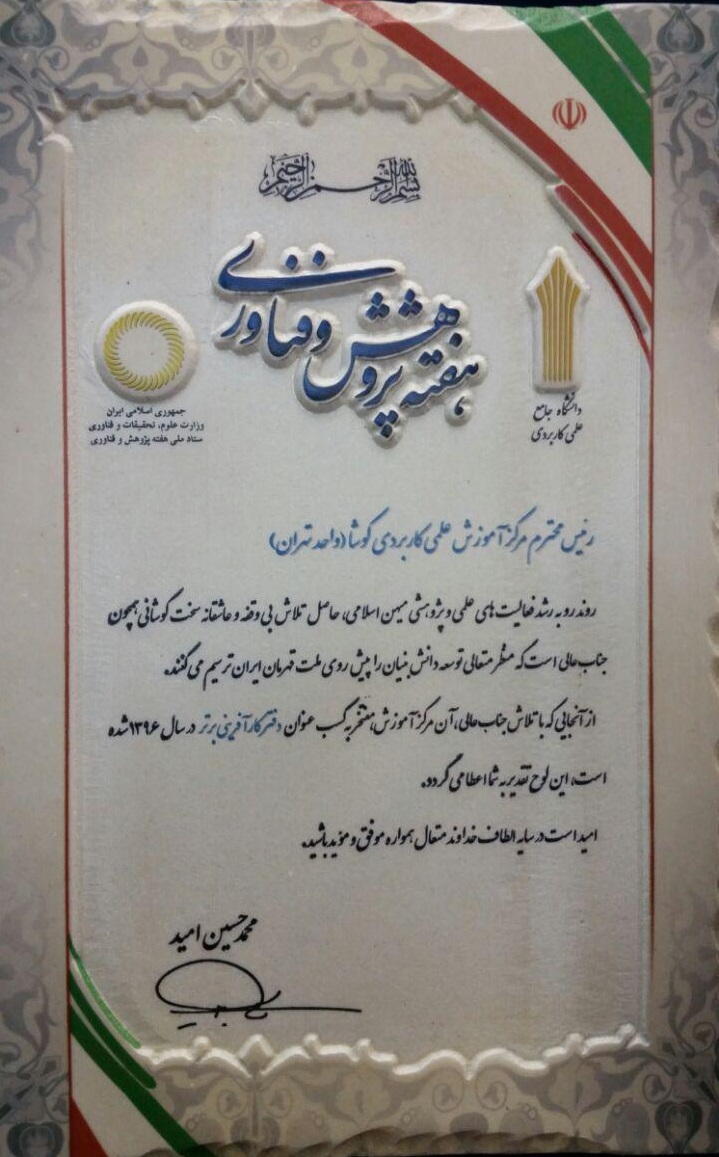 بسم الله الرحمن الرحیم
هفته پژوهش و فناوری
دانشگاه جامع
علمی کاربردی
جمهوری اسلامی ایران
وزارت علوم، تحقیقات و فناوری
ستاد ملی هفته پژوهش و فناوری
رئیس محترم مرکز آموزش علمی کاربردی کوشا (واحد تهران)
روند رو به رشد فعالیت های علمی و پژوهشی میهن اسلامی، حاصل تلاش بی وقفه و عاشقانه سخت کوشانی همچون
جناب عالی است که منظر متعالی توسعه دانش بنیان را پیش روی ملت قهرمان ایران ترسیم می کنند.
از آنجایی که با تلاش جناب عالی، آن مرکز آموزش، مفتخر به کسب عنوان دفتر کارآفرینی برتر در سال ۱۳۹۶ شده
است، این لوح تقدیر به شما اعطا می گردد.
امید است در سایه الطاف خداوند متعال همواره موفق و مؤید باشید.
محمد حسین امید